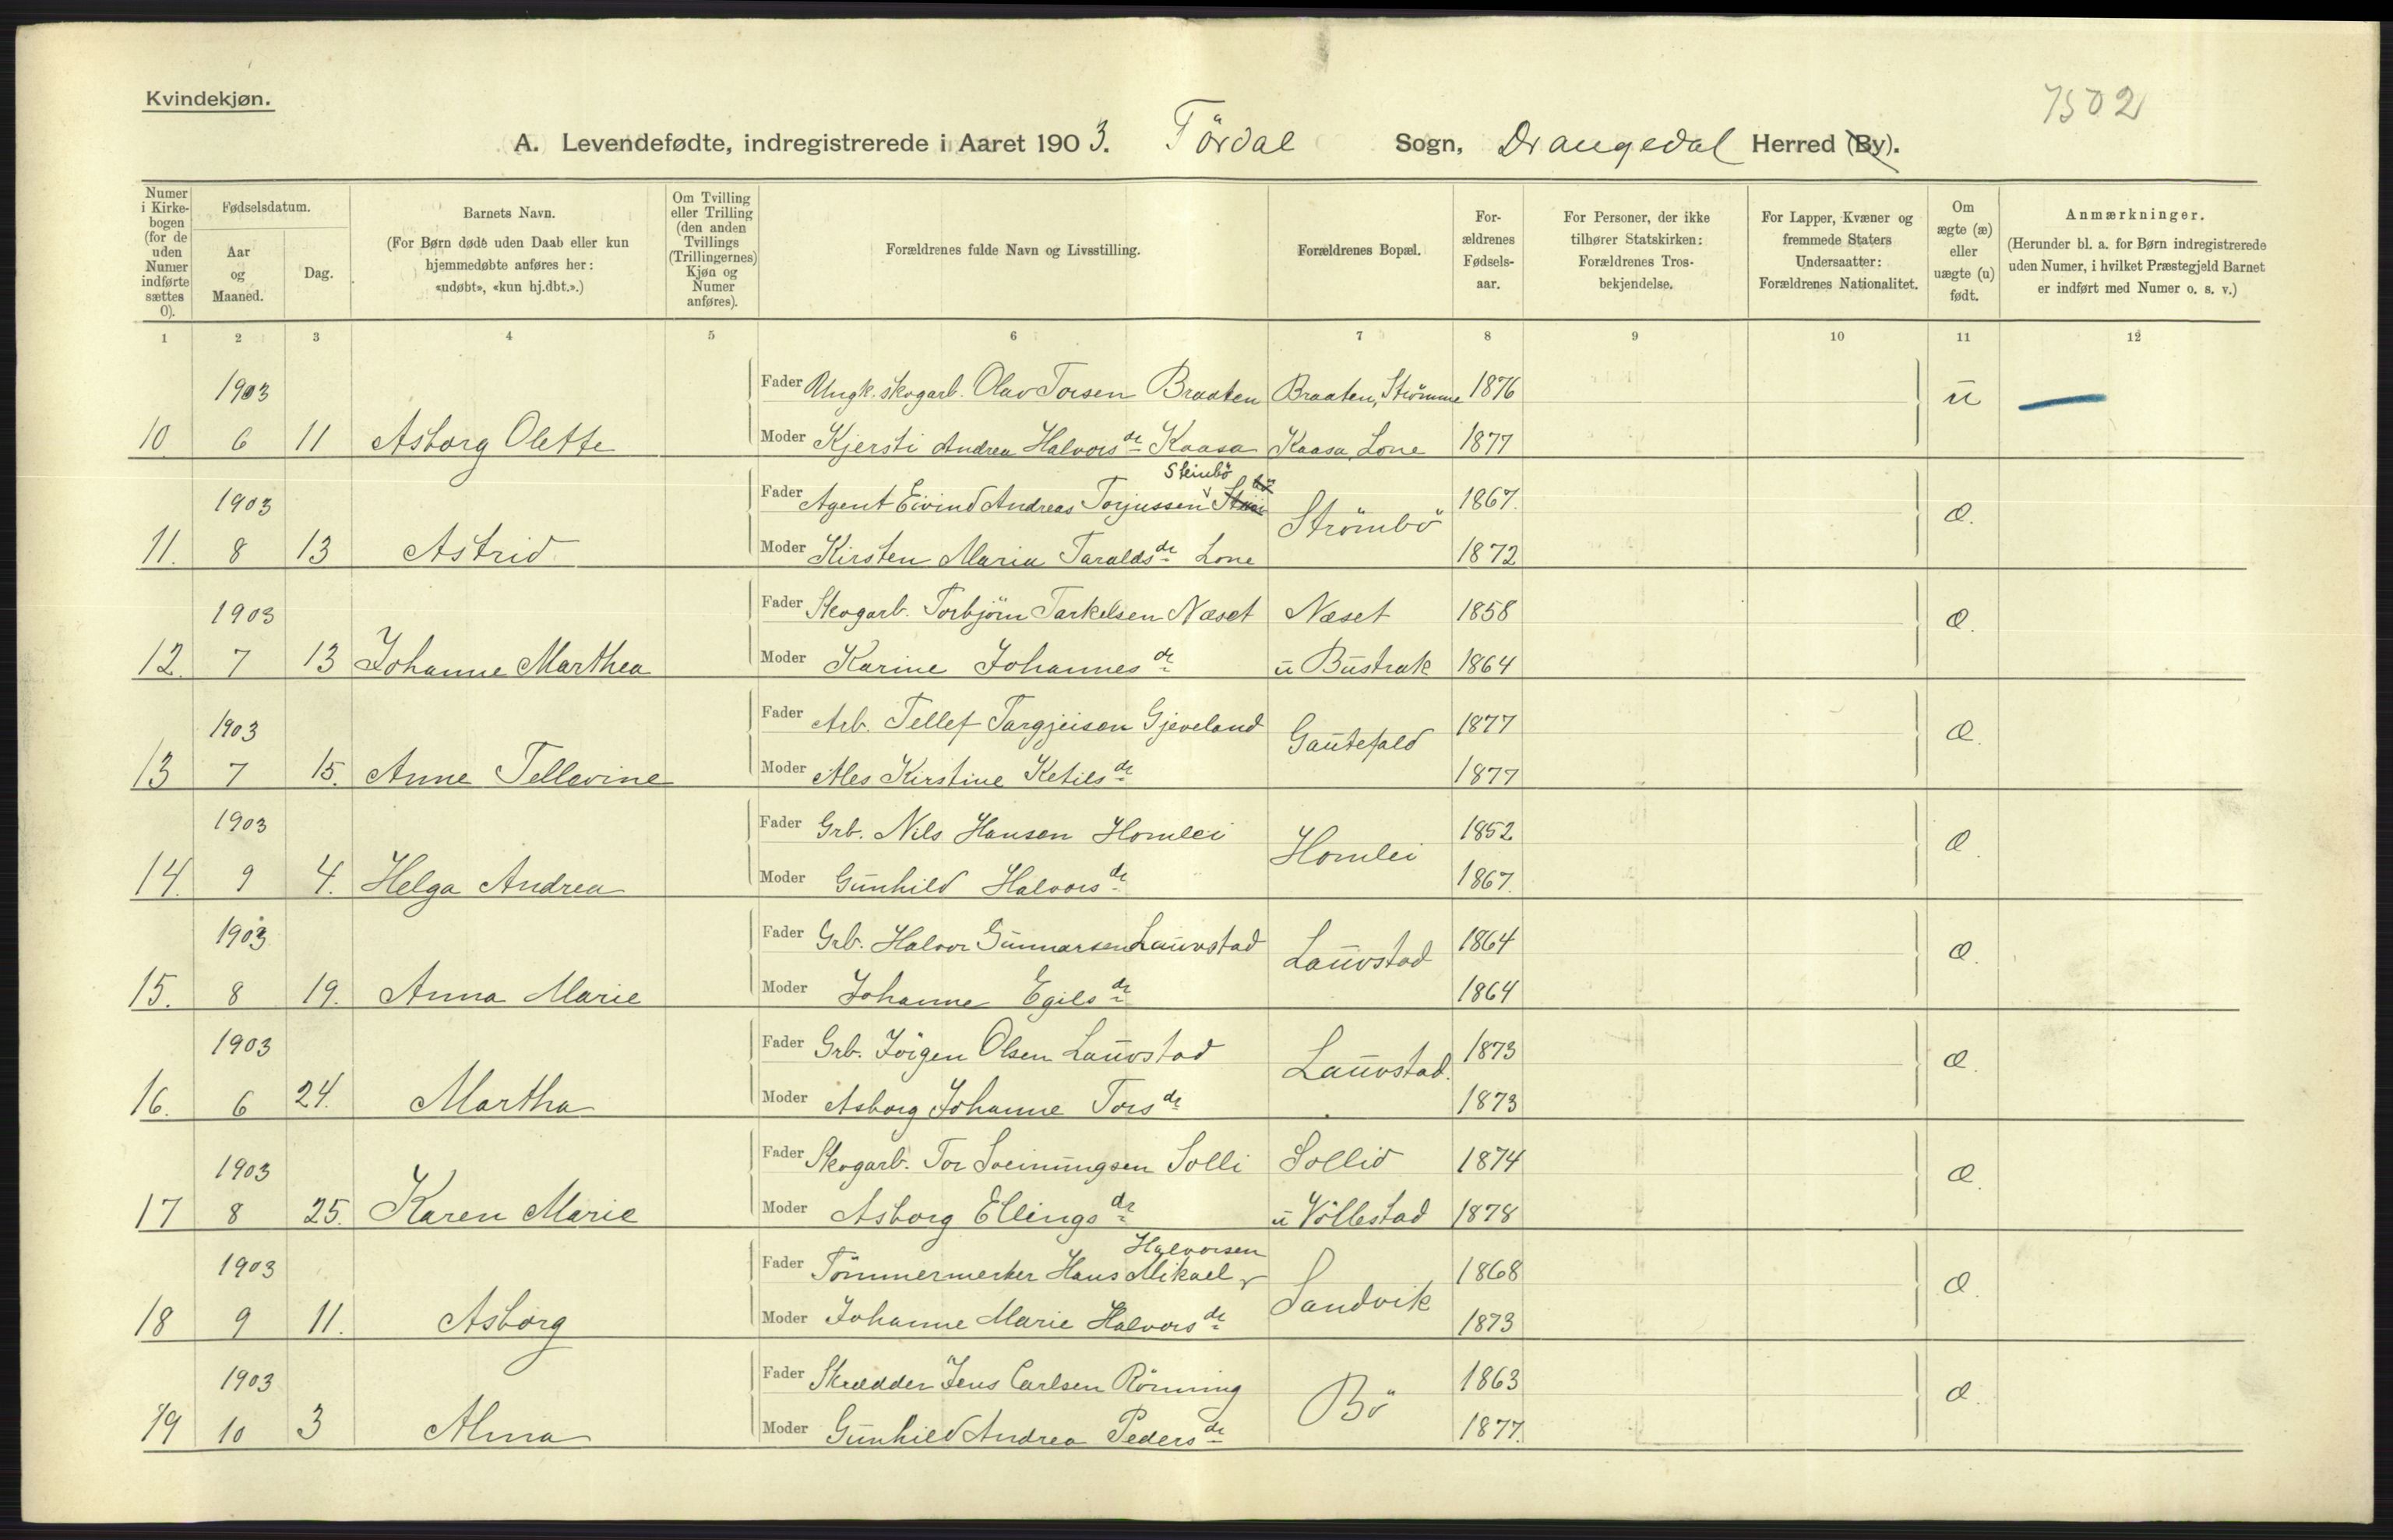 Kvindekjøn.
7502
A. Levendefødte, indregistrerede i Aaret 1903. Tördal Sogn, Drangedal Herred (By).
Numer i Kirkebogen (for de uden Numer indførte sættes 0).
Fødselsdatum.
Aar og Maaned.
Dag.
Barnets Navn.
(For Børn døde uden Daab eller kun hjemmedøbte anføres her: «udøbt», «kun hj.dbt.».)
Om Tvilling eller Trilling (den anden Tvillings (Trillingernes) Kjøn og Numer anføres).
Forældrenes fulde Navn og Livsstilling.
Forældrenes Bopæl.
Forældrenes Fødselsaar.
For Personer, der ikke tilhører Statskirken: Forældrenes Trosbekjendelse.
For Lapper, Kvæner og fremmede Staters Undersaatter: Forældrenes Nationalitet.
Om ægte (æ) eller uægte (u) født.
Anmærkninger.
(Herunder bl. a. for Børn indregistrerede uden Numer, i hvilket Præstegjeld Barnet er indført med Numer o. s. v.)
1 2 3 4 5 6 7 8 9 10 11 12
1903 Fader Ungk. skogarb. Olav Torsen Braaten Braaten, Strömme 1876 u
10 6 11 Asborg Olette Moder Kjersti Andrea Halvorsdr Kaasa Kaasa, Lone 1877
Steinbö
1903 Fader Agent Eivind Andreas Torjussen Strömbö 1867. æ.
11. 8 13 Astrid Moder Kirsten Maria Taraldsdr Lone 1872
1903 Fader Skogarb. Torbjörn Tarkelsen Næset Næset 1858 æ.
12. 7 13 Johanne Marthea Moder Karine Johannesdr u Bustrak 1864
1903 Fader Arb. Tellef Targjeisen Gjeveland Gautefald 1877 æ.
13 7 15. Anne Tellevine Moder Ales Kirstine Ketilsdr 1877
1903 Fader Grb. Nils Hansen Homlei Homlei 1852 æ.
14. 9 4. Helga Andrea Moder Gunhild Halvorsdr 1867.
1903 Fader Grb. Halvor Gunnarsen Lauvstad Lauvstad 1864 æ.
15. 8 19. Anna Marie Moder Johanne Egilsdr 1864
1903 Fader Grb. Jörgen Olsen Lauvstad Lauvstad. 1873 æ.
16. 6 24. Martha Moder Asborg Johanne Torsdr 1873
1903 Fader Skogarb. Tor Sveinungsen Solli Sollid 1874 æ.
17 8 25. Karen Marie Moder Asborg Ellingsdr u Völlestad 1878
Halvorsen
1903 Fader Tömmermerker Hans Mikael Sandvik 1868 æ.
18 9 11. Asborg Moder Johanne Marie Halvorsdr 1873
1903 Fader Skrædder Jens Carlsen Rönning Bö 1863 æ.
19 10 3 Alma Moder Gunhild Andrea Pedersdr 1877.